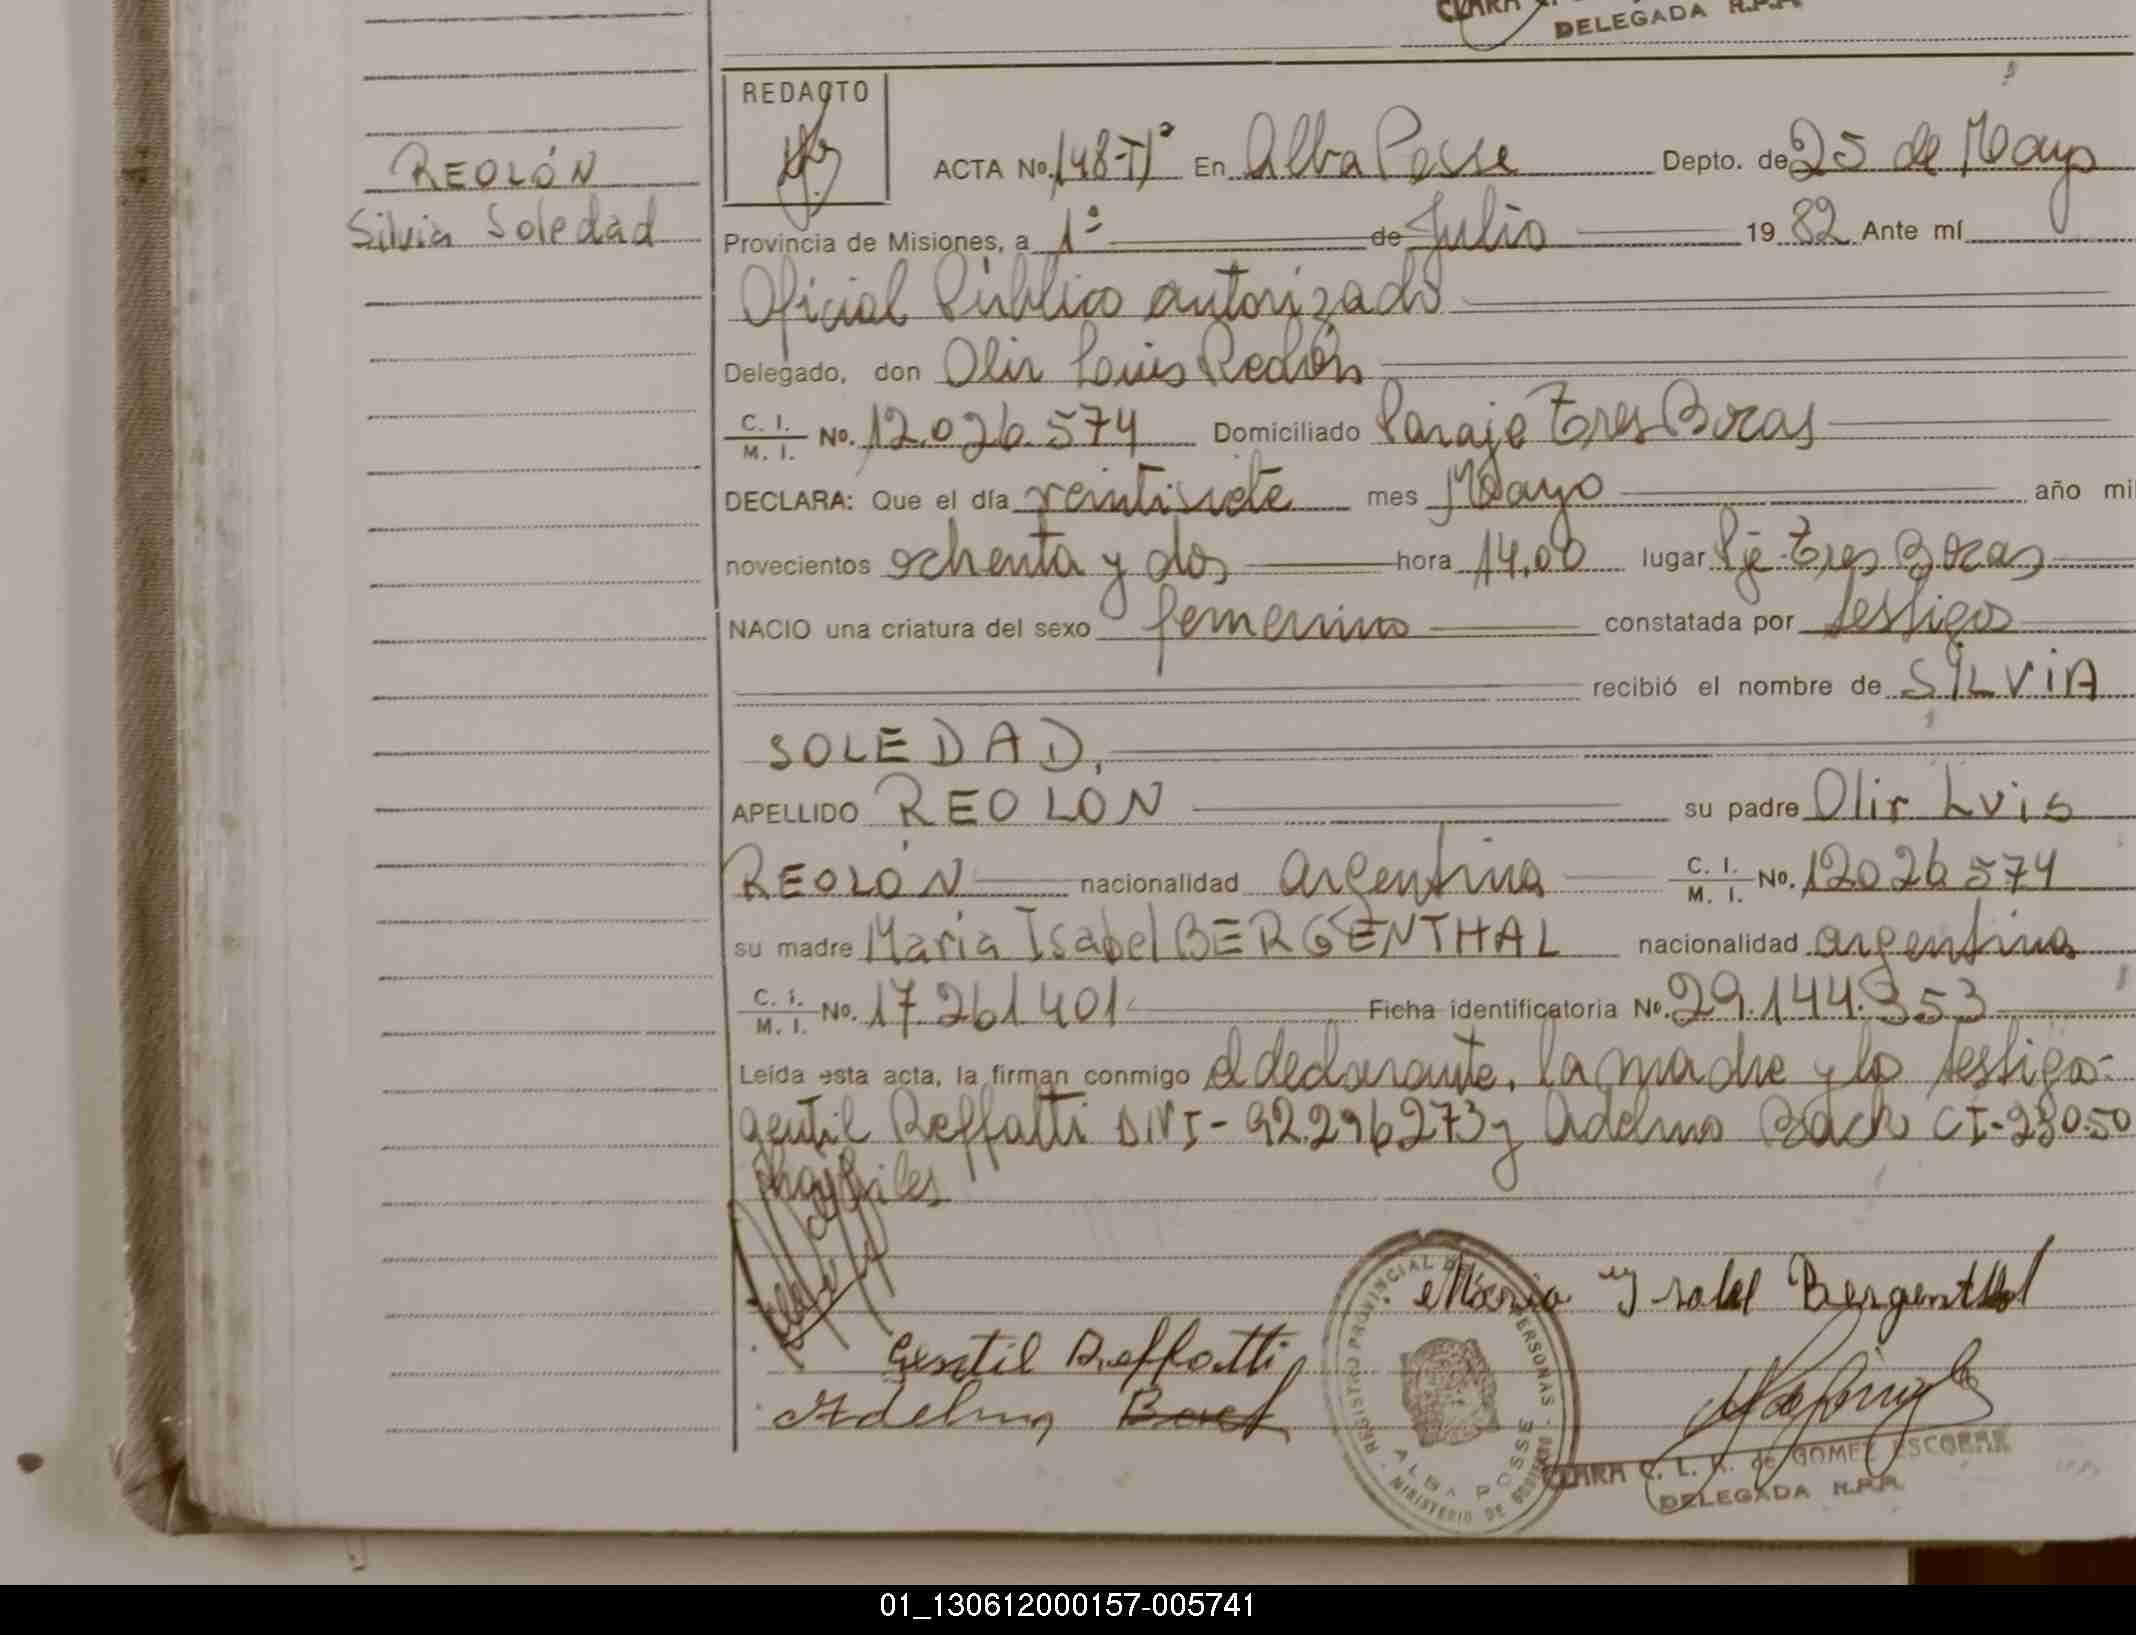 DELEGADA R.P.P.
REDACTO
ACTA No. 148-Tº En Alba Posse Depto. de 25 de Mayo
REOLÓN
Silvia Soledad
Provincia de Misiones, a 1º de Julio 1982 Ante mí
Oficial Público autorizado
Delegado, don Olir Luis Reolón
C. I. M. I. No. 12.026.574 Domiciliado Paraje Tres Bocas
DECLARA: Que el día veintisiete mes Mayo año mil
novecientos ochenta y dos hora 14,00 lugar Pje. Tres Bocas
NACIO una criatura del sexo femenino constatada por testigos
recibió el nombre de SILVIA
SOLEDAD,
APELLIDO REOLON su padre Olir Luis
REOLÓN nacionalidad argentina C. I. M. I. No. 12026574
su madre Maria Isabel BERGENTHAL nacionalidad argentina
C. I. M. I. No. 17.261401 Ficha identificatoria No. 29.144.353
Leída esta acta, la firman conmigo el declarante, la madre y los testigos:
Gentil Reffatti DNI-92.296273 y Adelmo Back CI-230.50
Maria Ysabel Bergenthal
Gentil Reffatti
Adelmo Back
REGISTRO PROVINCIAL DE PERSONAS - MINISTERIO DE GOBIERNO
ALBA POSSE
CLARA C. L. K. de GOMEZ ESCOBAR
DELEGADA R.P.P.
01_130612000157-005741